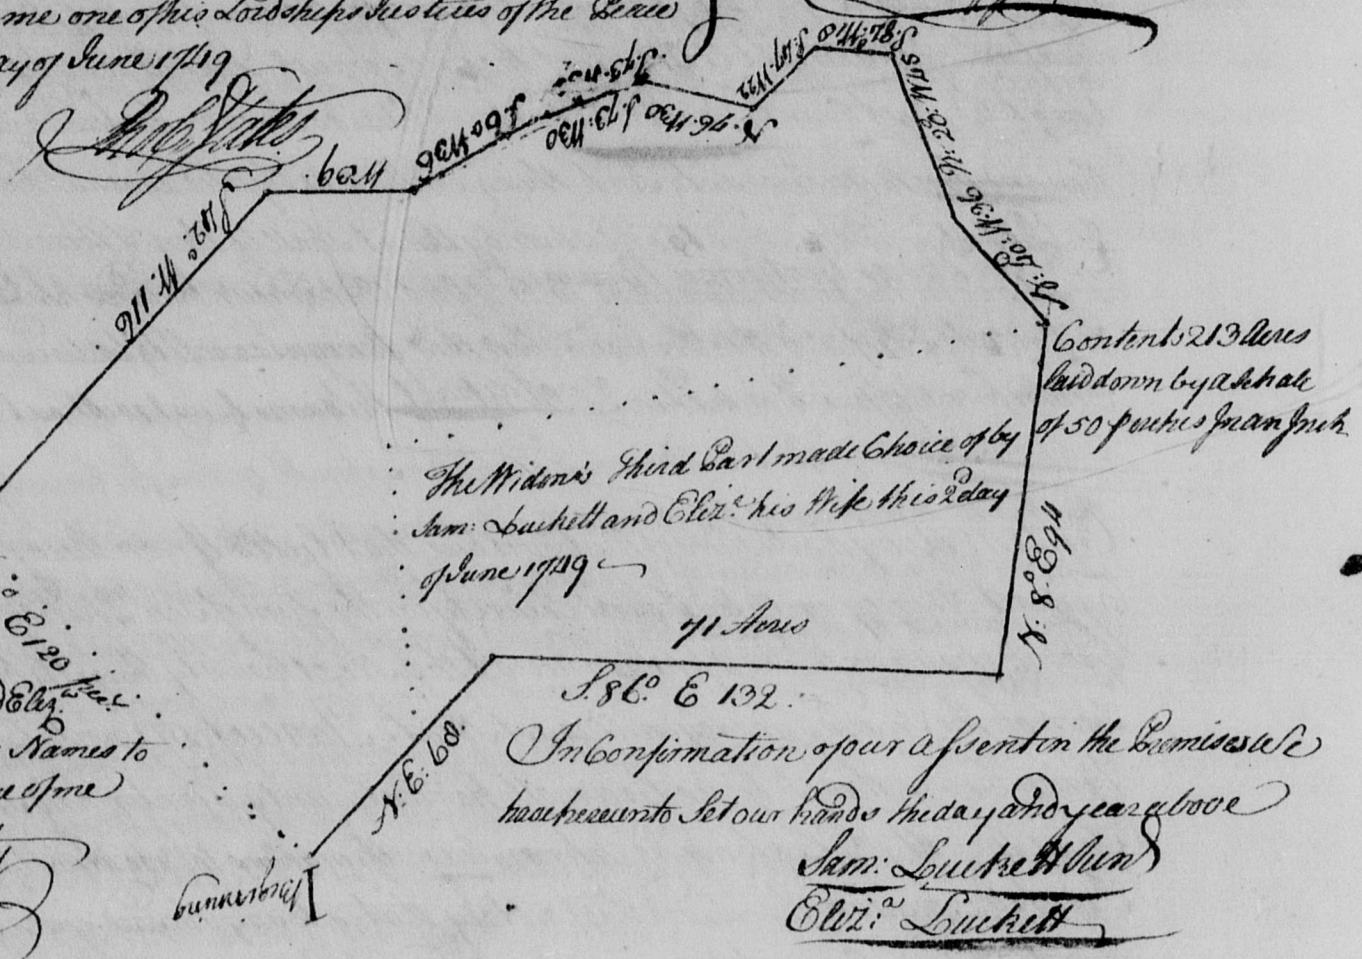 me one of his Lordships Justices of the Peace
ay of June 1749
S 42° W. 116
W 39
S. 60 W 36
S. 73. W 5½
S 73: W 30
N. 76. W 30
S. 47. W 22
S. 82: W 10
N: 20: W 45
N: 50: W: 36
Contents 213 Acres
laid down by a Schale
of 50 perches In an Inch
The Widow's third Part made Choice of by
Sam: Luckett and Eliz.a his Wife this 2d day
of June 1749
71 Acres
N: 8° E 94
S. 86° E 132.
N: E: 68
Beginning
° E 120
d Eliz.a
Names to
ce of me
In Confirmation of our assent in the Premises we
have hereunto Set our hands the day and year above
Sam: Luckett Jun
Eliz:a Luckett